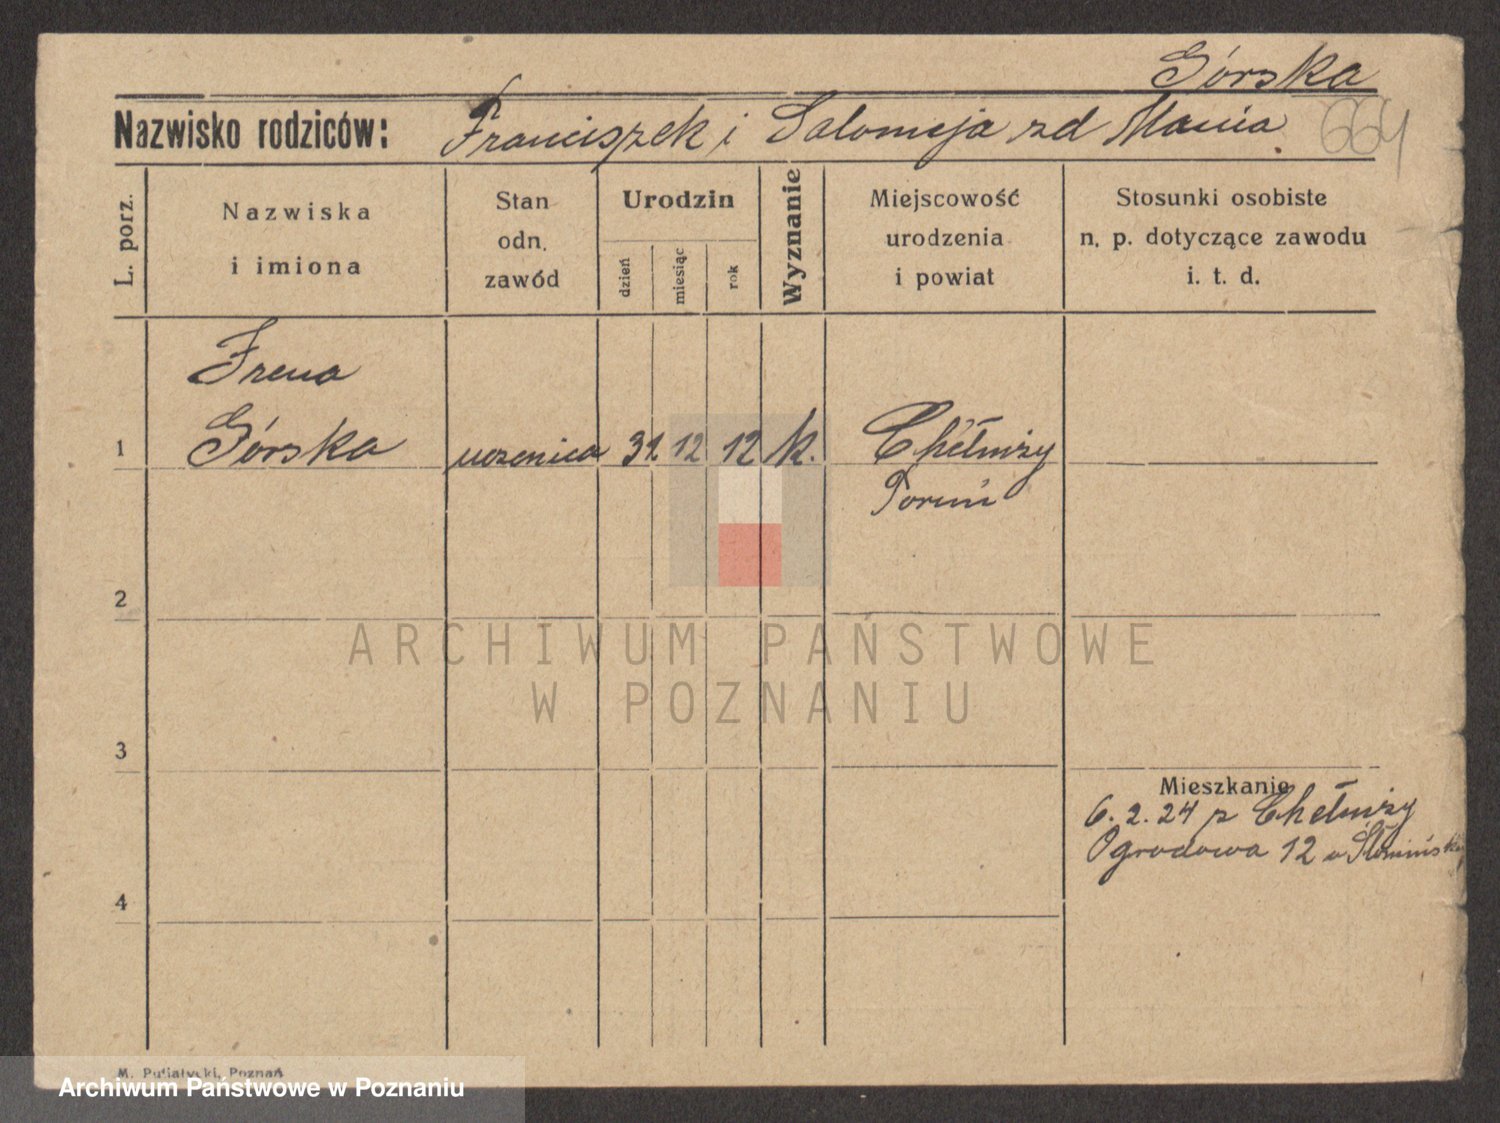 Górska
Nazwisko rodziców: Franciszek i Salomeja zd Mania. 664
L. porz.
Nazwiska i imiona
Stan odn. zawód
Urodzin
dzień miesiąc rok
Wyznanie
Miejscowość urodzenia i powiat
Stosunki osobiste n. p. dotyczące zawodu i. t. d.
Irena
1 Górska uczenica 31 12 12 k. Chełmży
Toruń
2
ARCHIWUM PAŃSTWOWE
W POZNANIU
3
Mieszkanie
6.2.24 z Chełmży
Ogrodowa 12 u
4
M. Putiatycki, Poznań
Archiwum Państwowe w Poznaniu